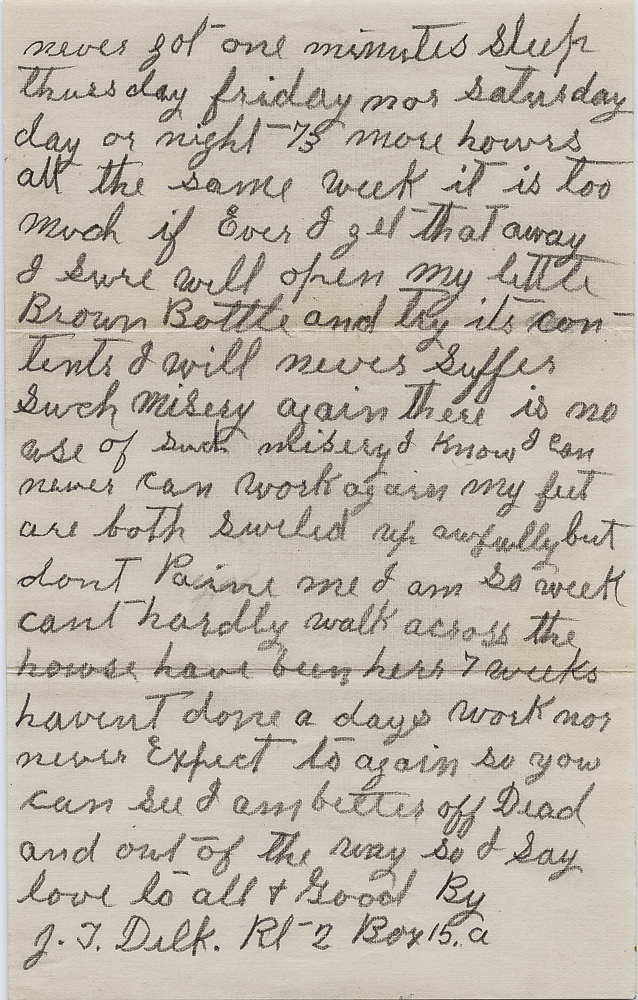 never got one minutes sleep
thursday friday nor saturday
day or night 73 more howrs
all the same week it is too
much if Ever I get that away
I Swre will open my little
Brown Bottle and try its con-
tents I will never Suffer
Swch Misery again there is no
wse of such misery I know I can
never can work again my feet
are both sweled up awfully but
dont Paine me I am so week
cant hardly walk across the
howse have been herr 7 weeks
havent done a days work nor
never Expect to again so you
can see I am better off Dead
and out of the way so I Say
love to all + Good By
J. T. Dilk. Rt 2 Box 15. a